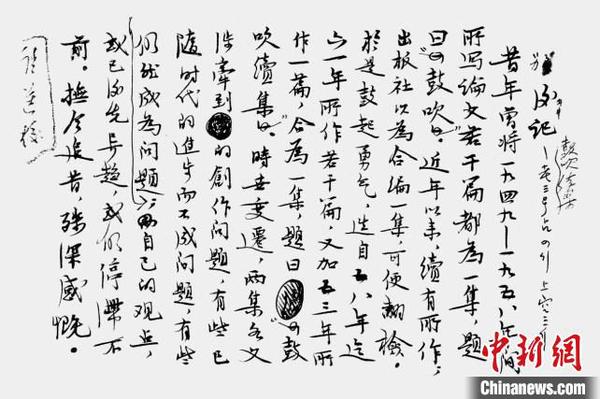 后记
昔年曾將一九四九—一九五八年間
所写論文若干篇都為一集,題
曰“鼓吹”。近年以来,續有所作,
出版社以為合編一集,可便翻檢。
於是鼓起勇气,选自五八年迄
六一年所作若干篇,又加五三年所
作一篇,合為一集,題曰“鼓
吹續集”。時世变遷,兩集各文
涉牽到的創作問題,有些已
隨时代的進步而不成問題,有些
仍然成為問題;而自己的观点,
或已先异趣,或仍停滯不
前。撫今追昔,殊深感慨。
中新網
Chinanews.com